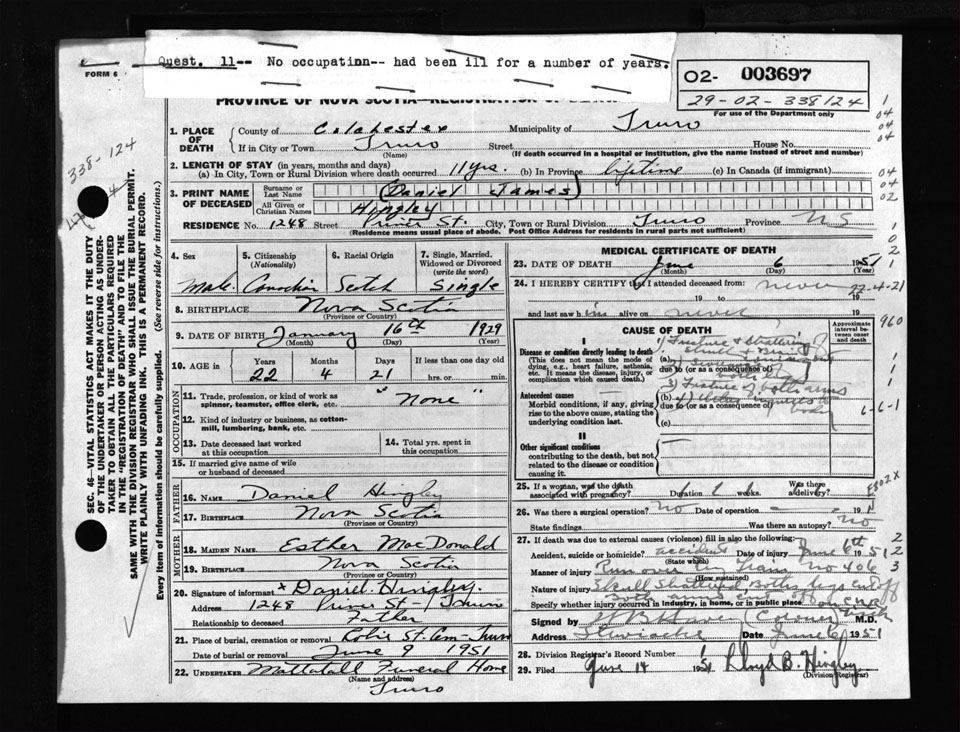 FORM 6
Quest. 11-- No occupation-- had been ill for a number of years.
02- 003697
29-02-338124
For use of the Department only
PROVINCE OF NOVA SCOTIA—REGISTRATION OF
338-124
1. PLACE OF DEATH
County of Colchester Municipality of Truro
If in City or Town Truro Street House No.
(Name) (If death occurred in a hospital or institution, give the name instead of street and number)
2. LENGTH OF STAY (in years, months and days)
(a) In City, Town or Rural Division where death occurred 11 yrs. (b) In Province lifetime (c) In Canada (if immigrant)
3. PRINT NAME OF DECEASED
Surname or Last Name (Daniel James)
All Given or Christian Names Hingley
RESIDENCE No. 1248 Street Prince St. City, Town or Rural Division Truro Province NS
(Residence means usual place of abode. Post Office Address for residents in rural parts not sufficient)
4. Sex
5. Citizenship (Nationality)
6. Racial Origin
7. Single, Married, Widowed or Divorced (write the word)
Male Canadian Scotch Single
8. BIRTHPLACE Nova Scotia
(Province or Country)
9. DATE OF BIRTH January 16th 1929
(Month) (Day) (Year)
10. AGE in Years Months Days If less than one day old
22 4 21 hrs. or min.
OCCUPATION
11. Trade, profession, or kind of work as spinner, teamster, office clerk, etc. "None"
12. Kind of industry or business, as cotton-mill, lumbering, bank, etc.
13. Date deceased last worked at this occupation
14. Total yrs. spent in this occupation
15. If married give name of wife or husband of deceased
FATHER
16. NAME Daniel Hingley
17. BIRTHPLACE Nova Scotia
(Province or Country)
MOTHER
18. MAIDEN NAME Esther MacDonald
19. BIRTHPLACE Nova Scotia
(Province or Country)
20. Signature of informant x Daniel Hingley.
Address 1248 Prince St - Truro
Relationship to deceased Father
21. Place of burial, cremation or removal Robie St. Cem - Truro
Date of burial or removal June 9 1951
22. UNDERTAKER Mattatall Funeral Home
(Name and address)
Truro
MEDICAL CERTIFICATE OF DEATH
23. DATE OF DEATH June 6 1951
(Month) (Day) (Year)
24. I HEREBY CERTIFY that I attended deceased from never
19 to 19
22-4-21
and last saw him alive on never 19
960
CAUSE OF DEATH
Approximate interval between onset and death
I
Disease or condition directly leading to death
(This does not mean the mode of dying, e.g., heart failure, asthenia, etc. It means the disease, injury, or complication which caused death.)
(a) 1) Fracture & Shattering of skull &
due to (or as a consequence of)
both legs
Antecedent causes
Morbid conditions, if any, giving rise to the above cause, stating the underlying condition last.
3) Fracture of both arms
(b) 4) Other injuries to
due to (or as a consequence of) body
(c)
6-6-1
II
Other significant conditions
contributing to the death, but not related to the disease or condition causing it.
25. If a woman, was the death associated with pregnancy? Duration wks. Was there a delivery?
E802X
26. Was there a surgical operation? No Date of operation - 19
State findings Was there an autopsy? no
27. If death was due to external causes (violence) fill in also the following:
Accident, suicide or homicide? accident Date of injury June 6th 1951
(State which)
Manner of injury Run over by Train No 406
(How sustained)
Nature of injury Skull Shattered Both legs cut off
Both arms cut off
Specify whether injury occurred in industry, in home, or in public place on CNR
Signed by (Coroner) M.D.
Address Stewiacke Date June 6 1951
28. Division Registrar's Record Number
29. Filed June 14 1951 Lloyd B. Hingley
(Division Registrar)
SEC. 46—VITAL STATISTICS ACT MAKES IT THE DUTY
OF THE UNDERTAKER OR PERSON ACTING AS UNDER-
TAKER TO OBTAIN ALL THE PARTICULARS REQUIRED
IN THE "REGISTRATION OF DEATH" AND TO FILE THE
SAME WITH THE DIVISION REGISTRAR WHO SHALL ISSUE THE BURIAL PERMIT.
WRITE PLAINLY WITH UNFADING INK. THIS IS A PERMANENT RECORD.
Every item of information should be carefully supplied. (See reverse side for instructions.)